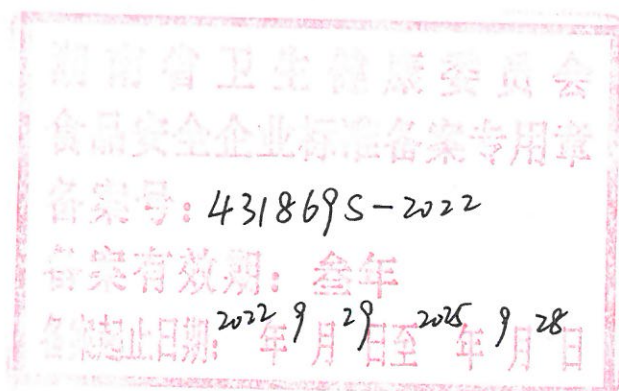 湖南省卫生健康委员会
食品安全企业标准备案专用章
备案号：431869S-2022
备案有效期：叁年
备案起止日期：2022年9月29日至2025年9月28日